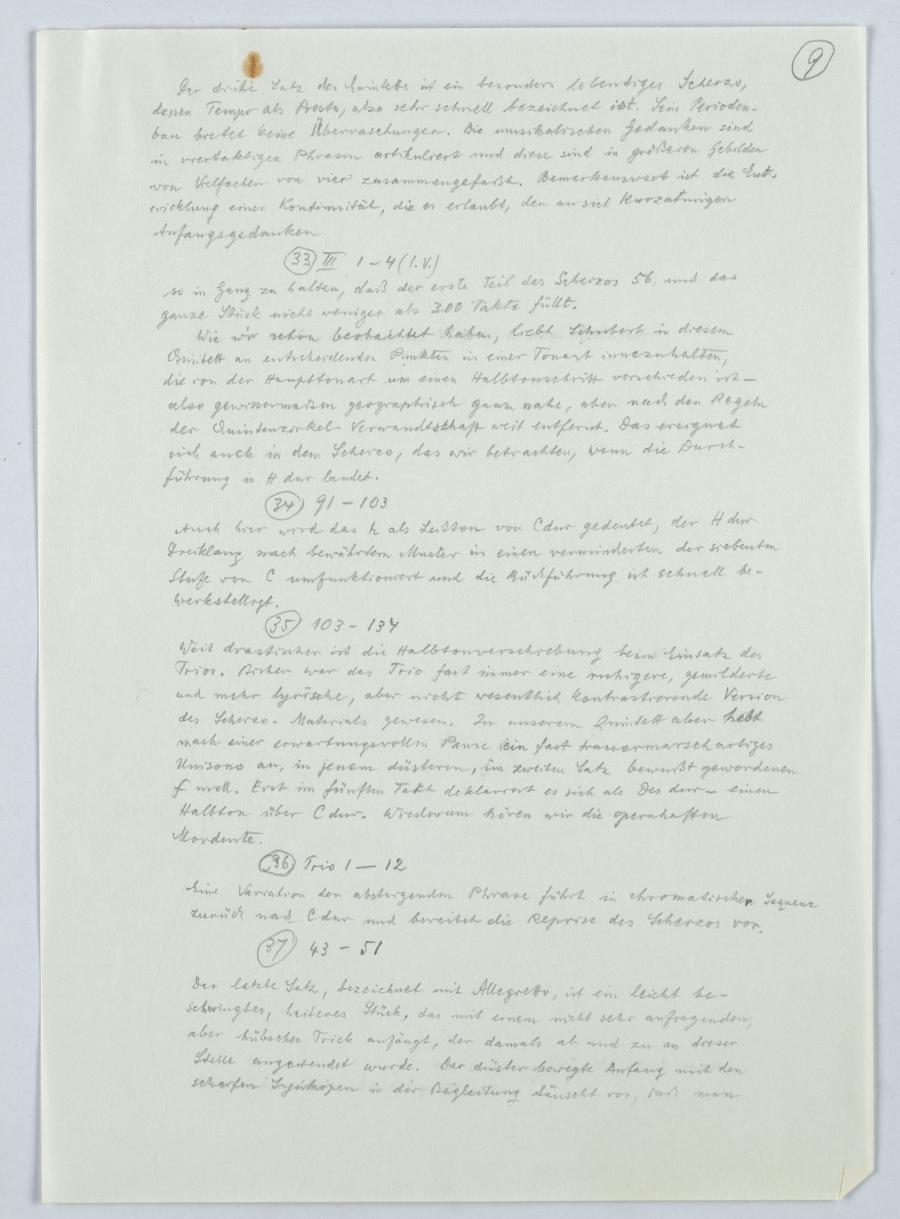 9
Der dritte Satz des Quintetts ist ein besonders lebendiges Scherzo,
dessen Tempo als Presto, also sehr schnell bezeichnet ist. Sein Perioden-
bau bietet keine Überraschungen. Die musikalischen Gedanken sind
in viertaktigen Phrasen artikuliert und diese sind in größeren Gebilden
von Vielfachen von vier zusammengefaßt. Bemerkenswert ist die Ent-
wicklung einer Kontinuität, die es erlaubt, den an sich kurzatmigen
Anfangsgedanken
33 III 1 – 4 (1. V.)
so in Gang zu halten, daß der erste Teil des Scherzos 56, und das
ganze Stück nicht weniger als 300 Takte füllt.
Wie wir schon beobachtet haben, liebt Schubert in diesem
Quintett an entscheidenden Punkten in einer Tonart innezuhalten,
die von der Haupttonart um einen Halbtonschritt verschieden ist –
also gewissermaßen geographisch ganz nahe, aber nach den Regeln
der Quintenzirkel-Verwandtschaft weit entfernt. Das ereignet
sich auch in dem Scherzo, das wir betrachten, wenn die Durch-
führung in H dur landet.
34 91 – 103
Auch hier wird das h als Leitton von C dur gedeutet, der H dur
Dreiklang nach bewährtem Muster in einen verminderten der siebenten
Stufe von C umfunktioniert und die Rückführung ist schnell be-
werkstelligt.
35 103 – 134
Weit drastischer ist die Halbtonverschiebung beim Einsatz des
Trios. Bisher war das Trio fast immer eine ruhigere, gemilderte
und mehr lyrische, aber nicht wesentlich kontrastierende Version
des Scherzo-Materials gewesen. In unserem Quintett aber hebt
nach einer erwartungsvollen Pause ein fast trauermarschartiges
Unisono an, in jenem düsteren, im zweiten Satz bewußt gewordenen
f moll. Erst im fünften Takt deklariert es sich als Des dur – einen
Halbton über C dur. Wiederum hören wir die opernhaften
Mordente.
36 Trio 1 – 12
Eine Variation der absteigenden Phrase führt in chromatischer Sequenz
zurück nach C dur und bereitet die Reprise des Scherzos vor.
37 43 – 51
Der letzte Satz, bezeichnet mit Allegretto, ist ein leicht be-
schwingtes, heiteres Stück, das mit einem nicht sehr aufregenden,
aber hübschen Trick anfängt, der damals ab und zu an dieser
Stelle angewendet wurde. Der düster bewegte Anfang mit den
scharfen Synkopen in der Begleitung täuscht vor, daß man